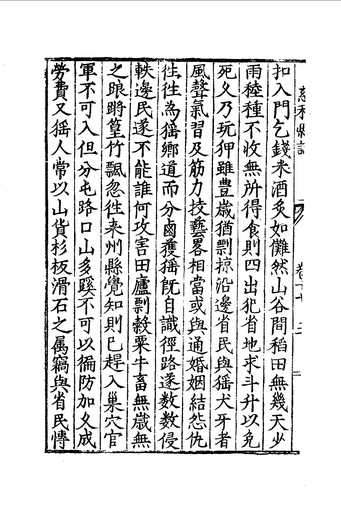 卷十七
扣入門乞錢米酒炙如儺然山谷間稻田無幾天少
雨稑種不收無所得食則四出犯省地求斗升以免
死久乃玩狎雖豊歲猶剽掠沿邊省民與猺犬牙者
風聲氣習及筋力技藝畧相當或與通婚姻結怨仇
徃徃為猺鄉道而分鹵獲猺既自識徑路遂數數侵
軼邊民遂不能誰何攻害田廬剽榖粟牛畜無歲無
之踉蹡篁竹飄忽徃来州縣覺知則已趕入巢穴官
軍不可入但分屯路口山多蹊不可以徧防加久成
勞費又猺人常以山貨杉板滑石之属竊與省民慱